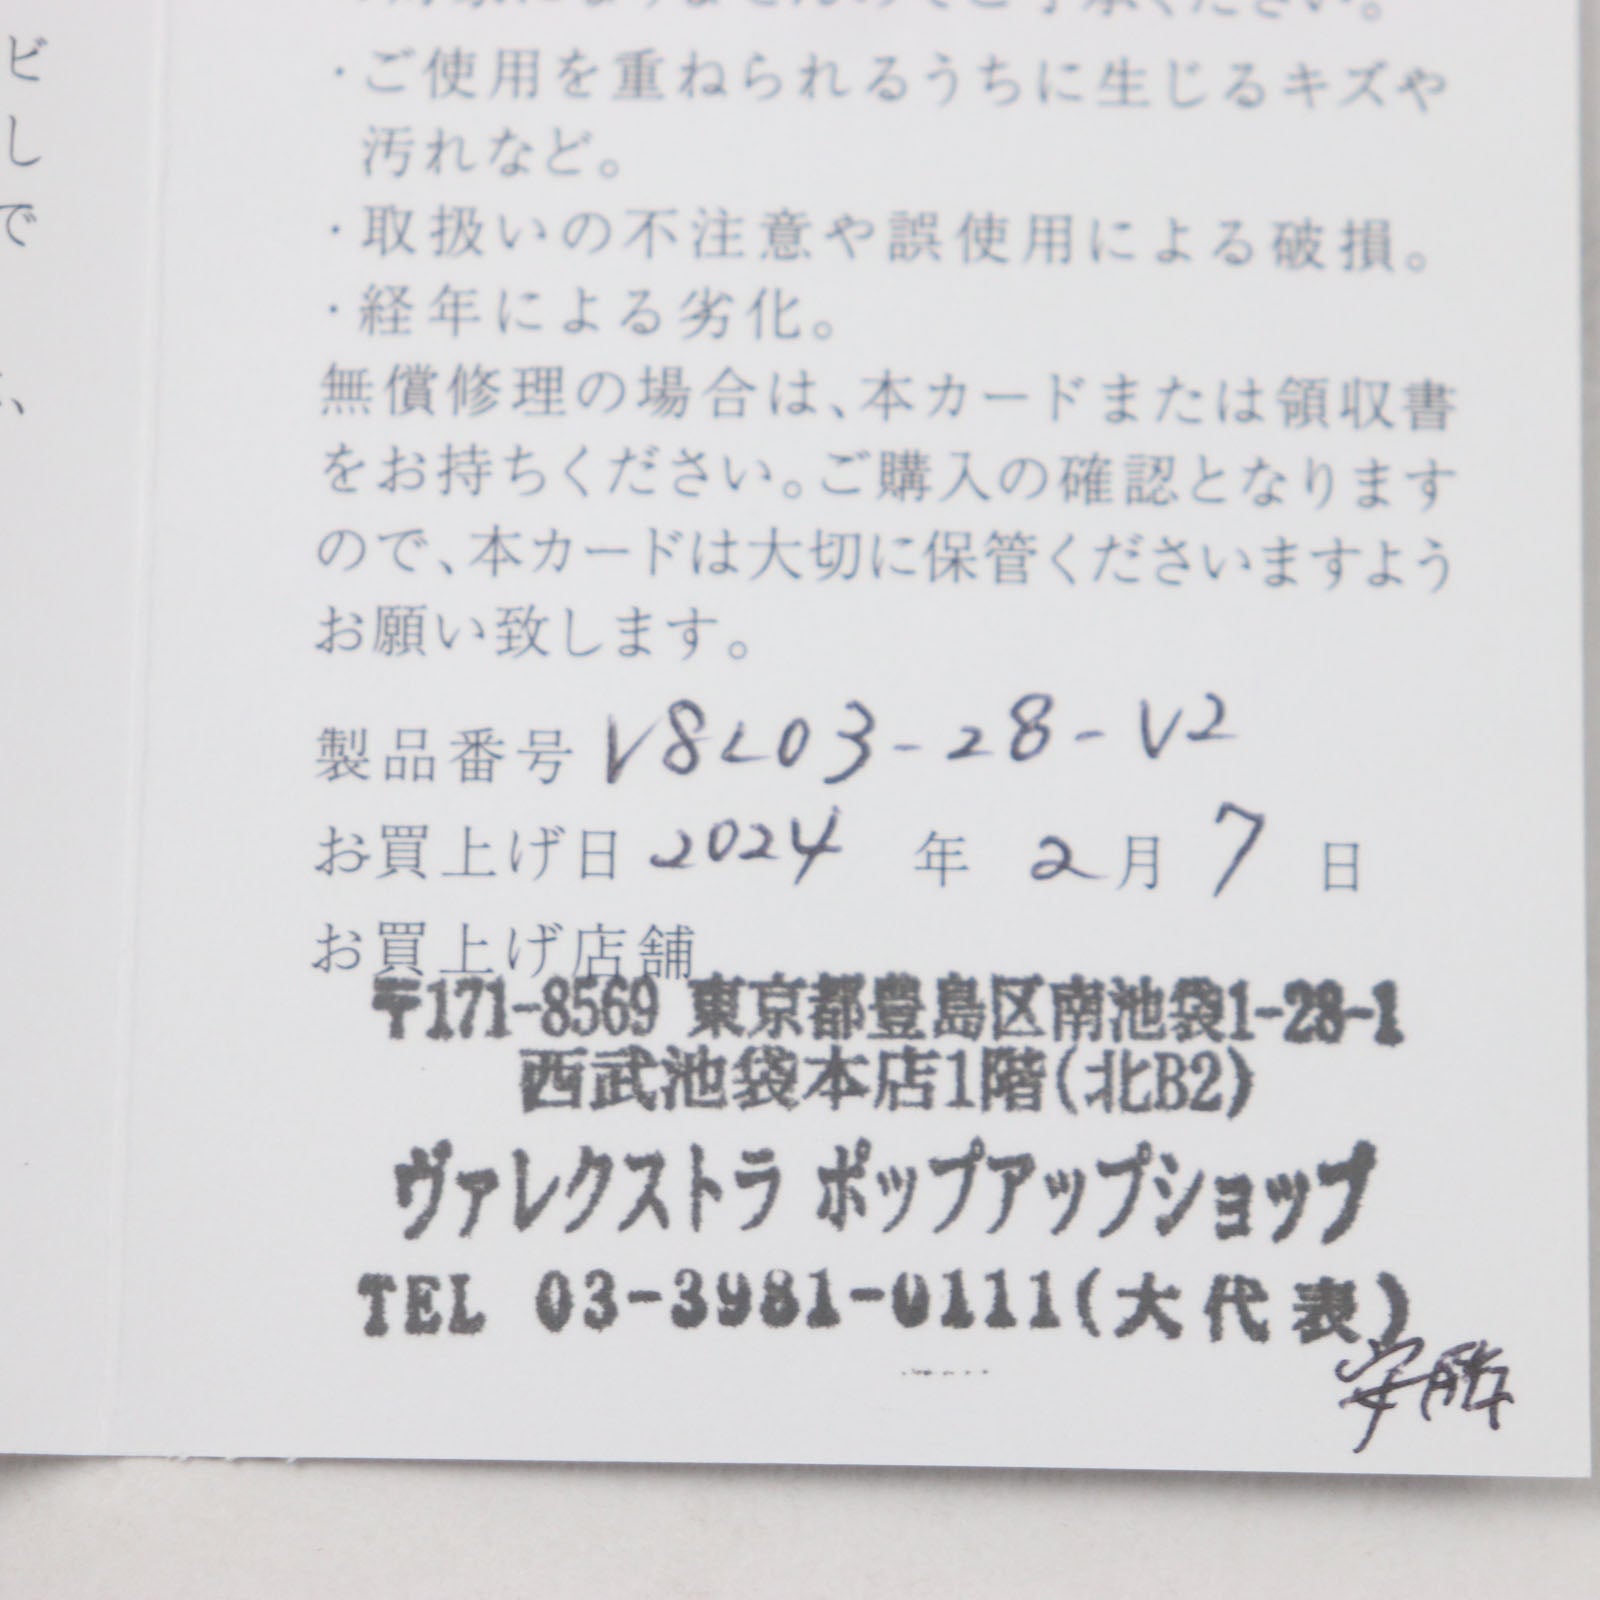 ビ
し
で
、
ご了承ください。
・ご使用を重ねられるうちに生じるキズや
汚れなど。
・取扱いの不注意や誤使用による破損。
・経年による劣化。
無償修理の場合は、本カードまたは領収書
をお持ちください。ご購入の確認となります
ので、本カードは大切に保管くださいますよう
お願い致します。
製品番号 V8L03-28-V2
お買上げ日 2024 年 2月 7 日
お買上げ店舗
〒171-8569 東京都豊島区南池袋1-28-1
西武池袋本店1階(北B2)
ヴァレクストラ ポップアップショップ
TEL 03-3981-0111(大代表)